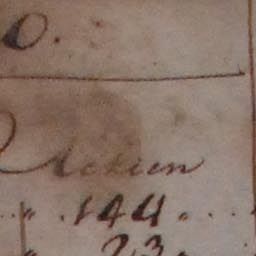 0.
Actien
" . 144 . . .
" 23.